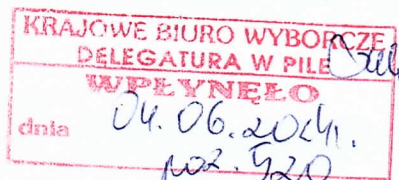 KRAJOWE BIURO WYBORCZE
DELEGATURA W PILE
WPŁYNĘŁO
dnia 04.06.2024r.
poz. 520